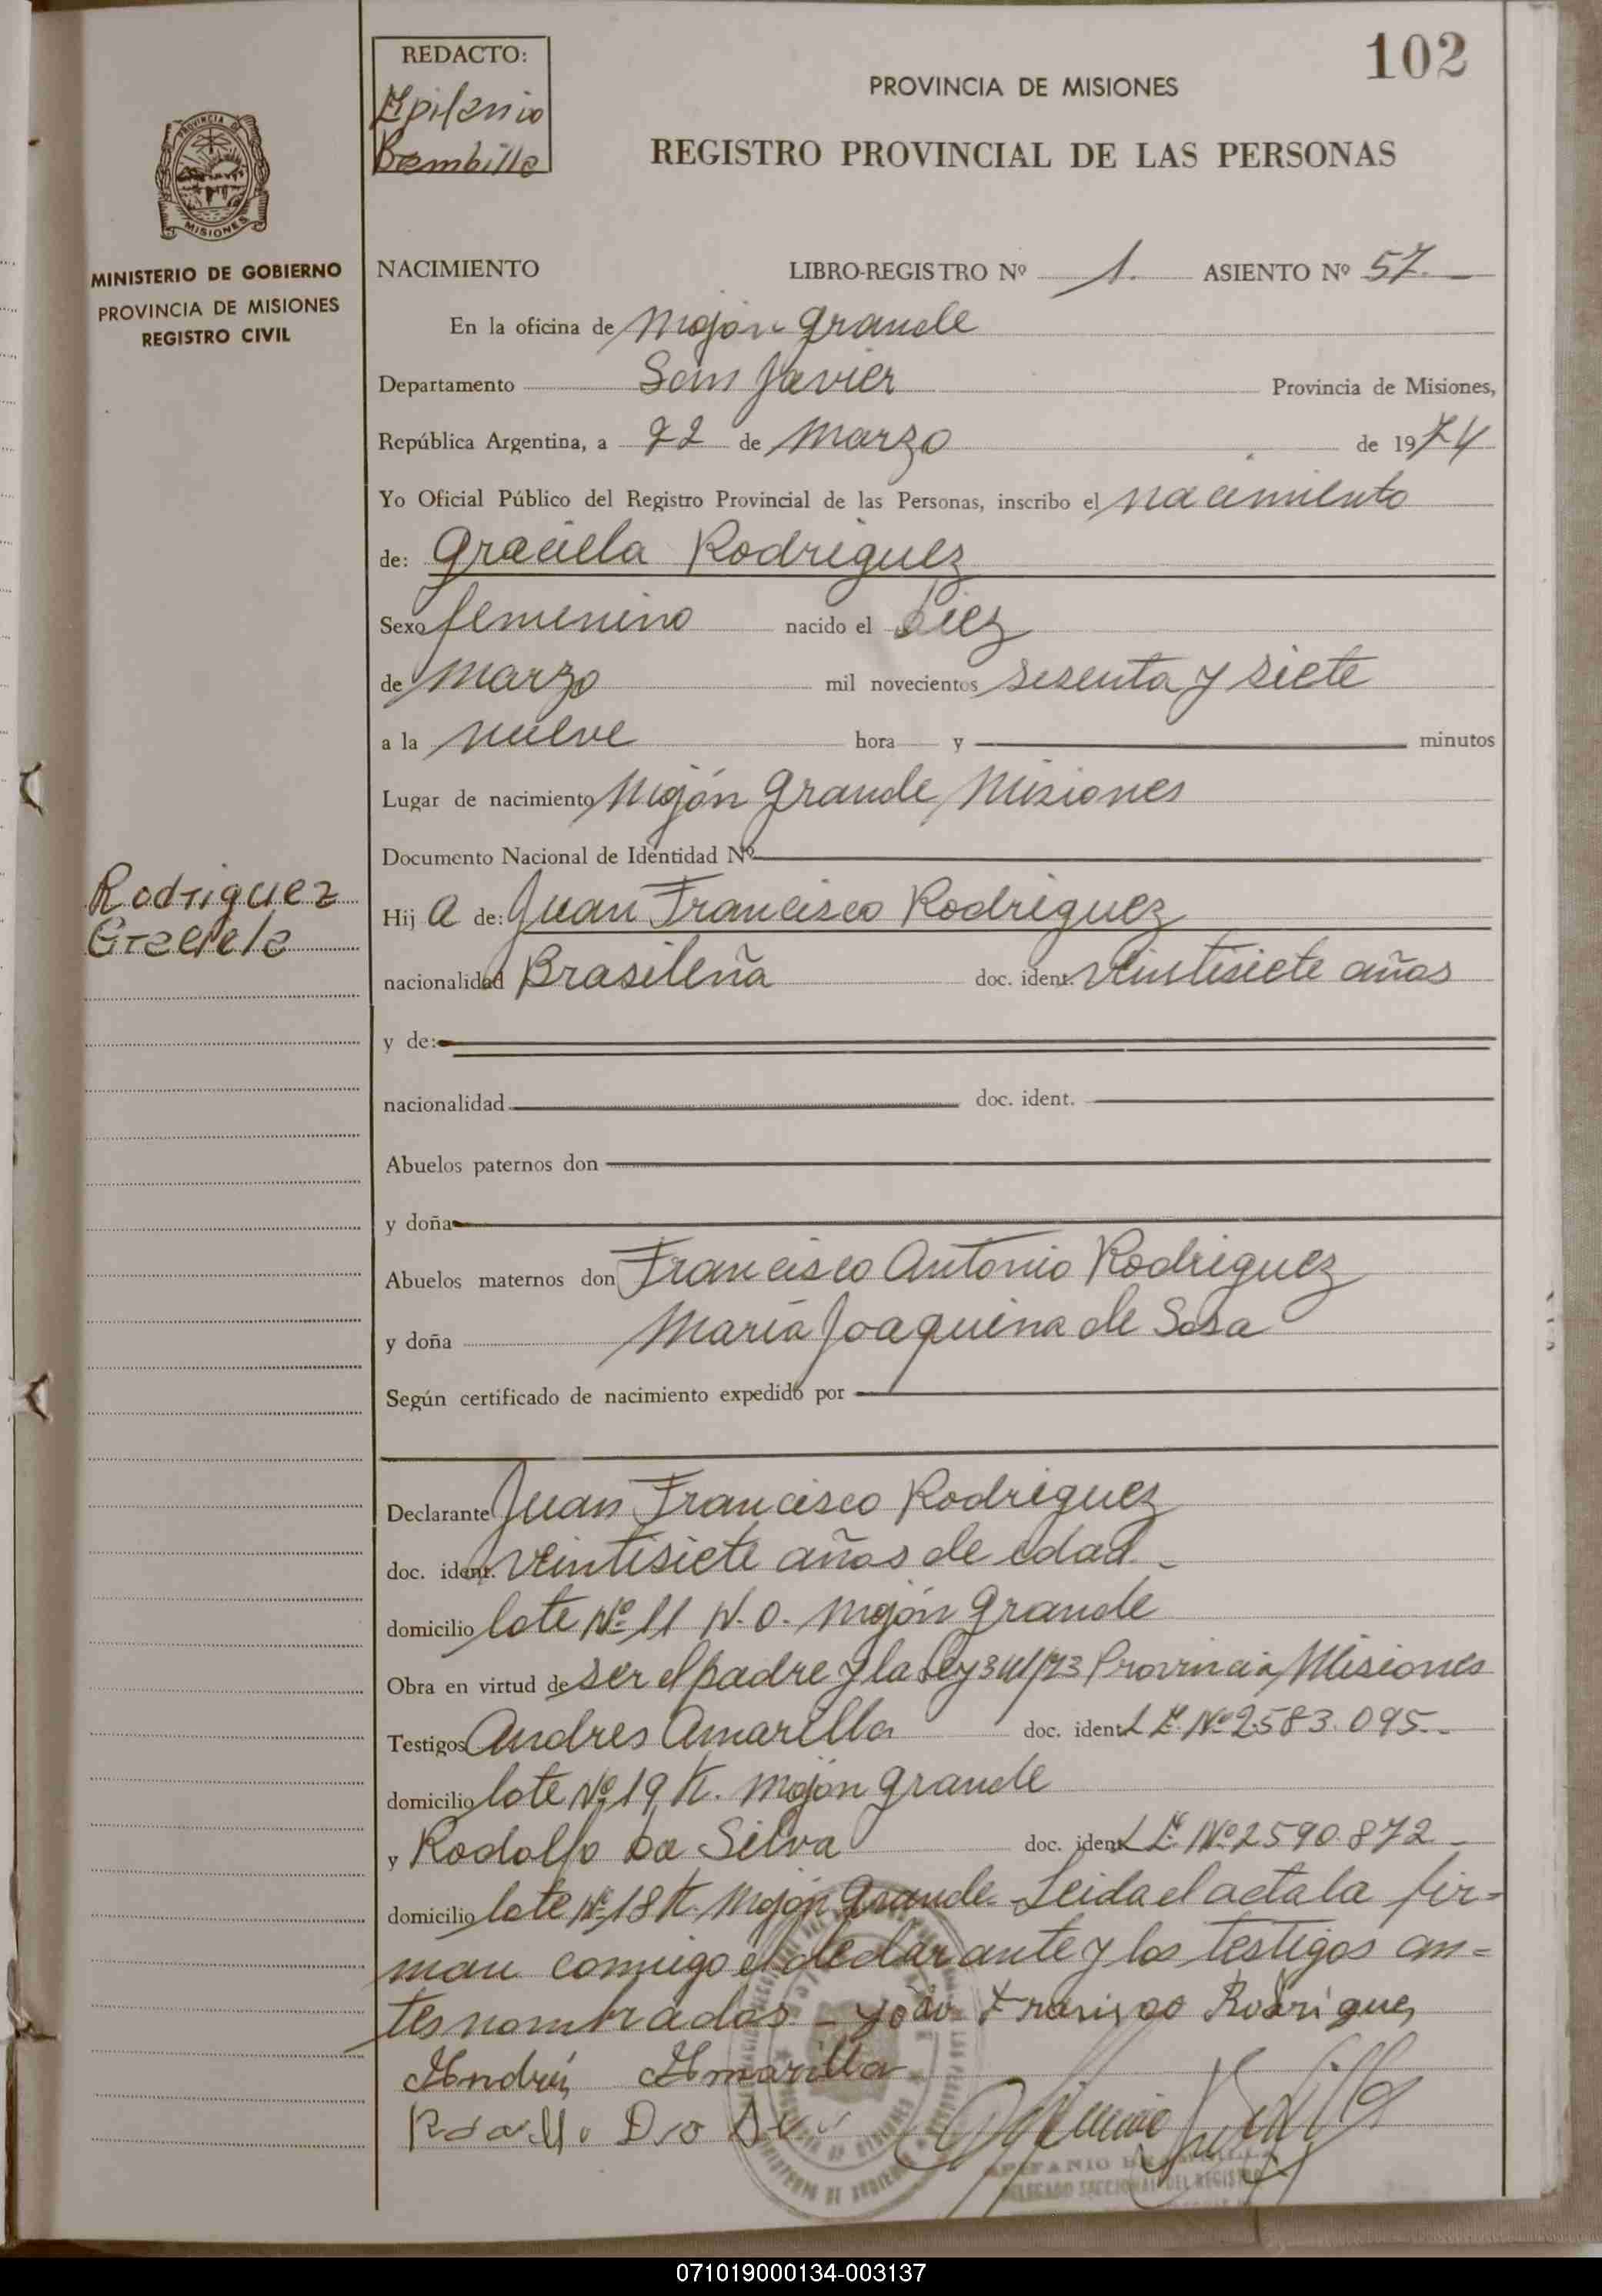 102
REDACTO:
Epifanio
Bembille
PROVINCIA DE MISIONES
REGISTRO PROVINCIAL DE LAS PERSONAS
PROVINCIA DE
MISIONES
MINISTERIO DE GOBIERNO
PROVINCIA DE MISIONES
REGISTRO CIVIL
NACIMIENTO LIBRO-REGISTRO Nº 1. ASIENTO Nº 57.
En la oficina de Mojón grande
Departamento San Javier Provincia de Misiones,
República Argentina, a 22 de Marzo de 1974
Yo Oficial Público del Registro Provincial de las Personas, inscribo el nacimiento
de: Graciela Rodriguez
Sexo femenino nacido el Diez
de Marzo mil novecientos sesenta y siete
a la nueve hora y minutos
Lugar de nacimiento Mojón grande, Misiones
Documento Nacional de Identidad Nº
Rodriguez
Graciela
Hij a de: Juan Francisco Rodriguez
nacionalidad Brasileña doc. ident. veintisiete años
y de:
nacionalidad doc. ident.
Abuelos paternos don
y doña
Abuelos maternos don Francisco Antonio Rodriguez
y doña María Joaquina de Sosa
Según certificado de nacimiento expedido por
Declarante Juan Francisco Rodriguez
doc. ident. veintisiete años de edad.-
domicilio lote Nº 11 N.O. Mojón grande
Obra en virtud de ser el padre y la Ley /73 Provincia Misiones
Testigos Andres Amarilla doc. ident. L.E. Nº 2.583.095.-
domicilio lote Nº 19 K. Mojón grande
y Rodolfo Da Silva doc. ident. L.E. Nº 2590.872.-
domicilio lote Nº 18 K. Mojón grande. Leida el acta la fir=
man conmigo el declarante y los testigos an=
tes nombrados.- João Francisco Rodrigues
Andrés Amarilla
DELEGADO SECCIONAL DEL REGISTRO
071019000134-003137